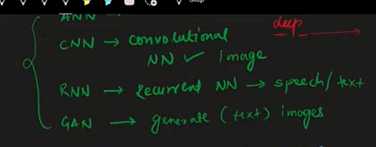 ANN →
deep →
CNN → convolutional
NN ✓ image
RNN → recurrent NN → speech/text
GAN → generate (text) images